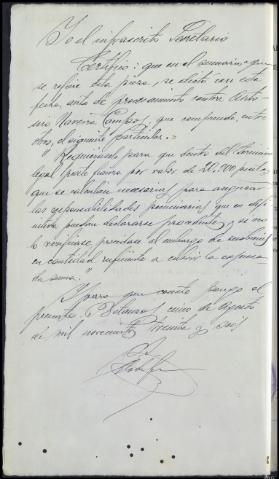 Yo el infrascrito Secretario
Certifico: que en el sumario a que
se refiere esta pieza, se dictó con esta
fecha, auto de procesamiento contra
que comprende, entre
otros, el siguiente particular.=
"Requiérasele para que dentro del término
legal preste fianza por valor de 20.000 pesetas
que se calculan necesarias para asegurar
las responsabilidades pecuniarias que en defi-
nitiva puedan declararse procedentes; y si no
lo verificase, procédase al embargo de sus bienes
en cantidad suficiente a cubrir la expresa-
da suma."
Y para que conste pongo el
presente. cinco de Agosto
de mil novecientos treinta y seis